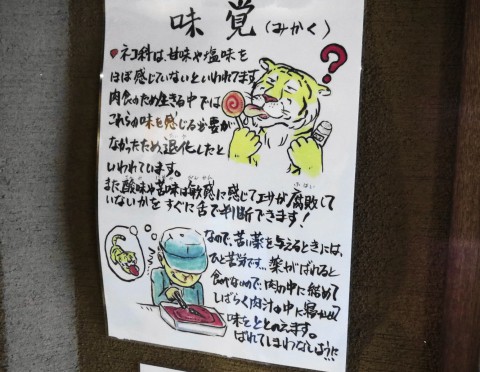 味覚(みかく)
♥ネコ科は、甘味や塩味を
ほぼ感じていないといわれてます
肉食のため生きる中では
これらの味を感じる必要が
なかったため、退化したと
いわれています。
また酸味や苦味は敏感に感じてエサが腐敗して
いないかをすぐに舌で判断できます!
なので、苦い薬を与えるときには、
ひと苦労です…薬がばれると
食べないので、肉の中に詰めて
しばらく肉汁の中に寝かせて
味をととのえます。
ばれてしまわないように!!
?